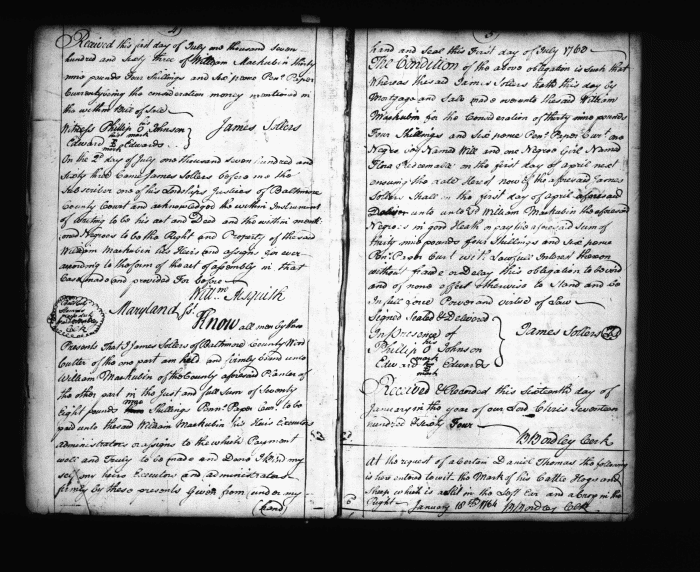 Received this first day of July one thousand seven
hundred and sixty three of William Mackubin thirty
nine pounds four Shillings and Six pence Penn: Paper
Currency being the consideration money mentioned in
the within Bill of Sale
Witness Phillip O Johnson
his mark
James Sollers
Edward E Edwards
mark
On the 2d day of July one thousand seven hundred and
Sixty three Came James Sollers before me the
Subscriber one of his Lordships Justices of Baltimore
County Court and acknowledged the within Instrument
of Writing to be his act and Deed and the within menti
oned Negroes to be the Right and Property of the said
William Mackubin his Heirs and assigns for ever
according to the form of the act of assembly in that
Case made and provided For before
Willm Asquith
Maryland Sc.
Know all men by these
Presents That I James Sollers of Baltimore County Wood
Cutter of the one part am held and firmly Bound unto
William Mackubin of the County aforesaid Planter of
the other part in the Just and full sum of Seventy
Eight pounds nine Shillings Penn: Paper Curr: to be
paid unto the said William Mackubin his Heirs Executors
administrators or assigns to the which Payment
well and Truly to be made and Done I Bind my
self my heirs Executors and administrators
firmly by these presents Given from under my
(hand
hand and Seal this First day of July 1763
The Condition of the above obligation is such that
Whereas the said James Sollers hath this day by
Mortgage and Sale made over unto the said William
Mackubin for the Consideration of thirty nine pounds
Four Shillings and Six pence Penn: Paper Curt: one
Negro boy Named Will and one Negro Girl Named
on the first day of april next
ensuing the date Hereof now if the aforesaid James
Sollers Shall in the first day of april aforesaid
Deliver unto William Mackubin the aforesaid
Negroes in good Health or pay the aforesaid sum of
thirty nine pounds four Shillings and Six pence
Penn: Paper Curt: with Lawfull Interest thereon
without fraud or Delay this obligation to be void
and of none effect otherwise to Stand and be
in full force Power and virtue of Law
Signed Sealed & Delivered
In Presence of
James Sollers
Phillip O Johnson
mark
Edward E Edwards
mark
Received & Recorded this Sixteenth day of
January in the year of our Lord Christ Seventeen
hundred & Sixty Four
B Bordley Cerk
At the request of a Certain Daniel Thomas the following
is here entered to wit the Mark of his Cattle Hogs and
Sheep which is a slit in the Left Ear and a Crop in the
Right January 18th 1764 B Bordley Cerk